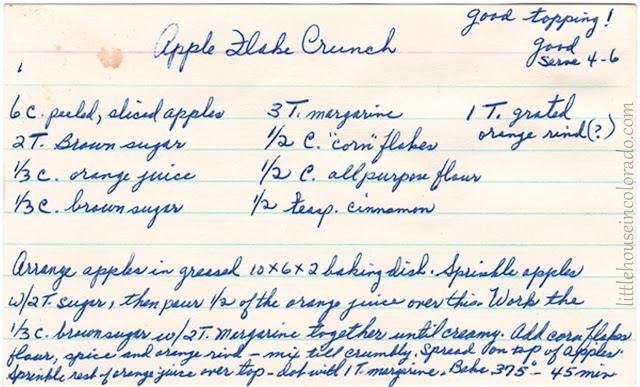 good topping!
Apple Flake Crunch
good
serve 4-6
6 c. peeled, sliced apples 3 T. margarine 1 T. grated
orange rind(?)
2 T. Brown sugar 1/2 C. "corn" flakes
1/3 c. orange juice 1/2 C. all purpose flour
1/3 c. brown sugar 1/2 teasp. cinnamon
Arrange apples in greased 10x6x2 baking dish. Sprinkle apples
w/2T. sugar, then pour 1/2 of the orange juice over this. Work the
1/3 c. brown sugar w/2T. Margarine together until creamy. Add corn flakes
flour, spice and orange rind - mix till crumbly. Spread on top of apples.
Sprinkle rest of orange juice over top - dot with 1 T. margarine. Bake 375 - 45 min
littlehouseincolorado.com